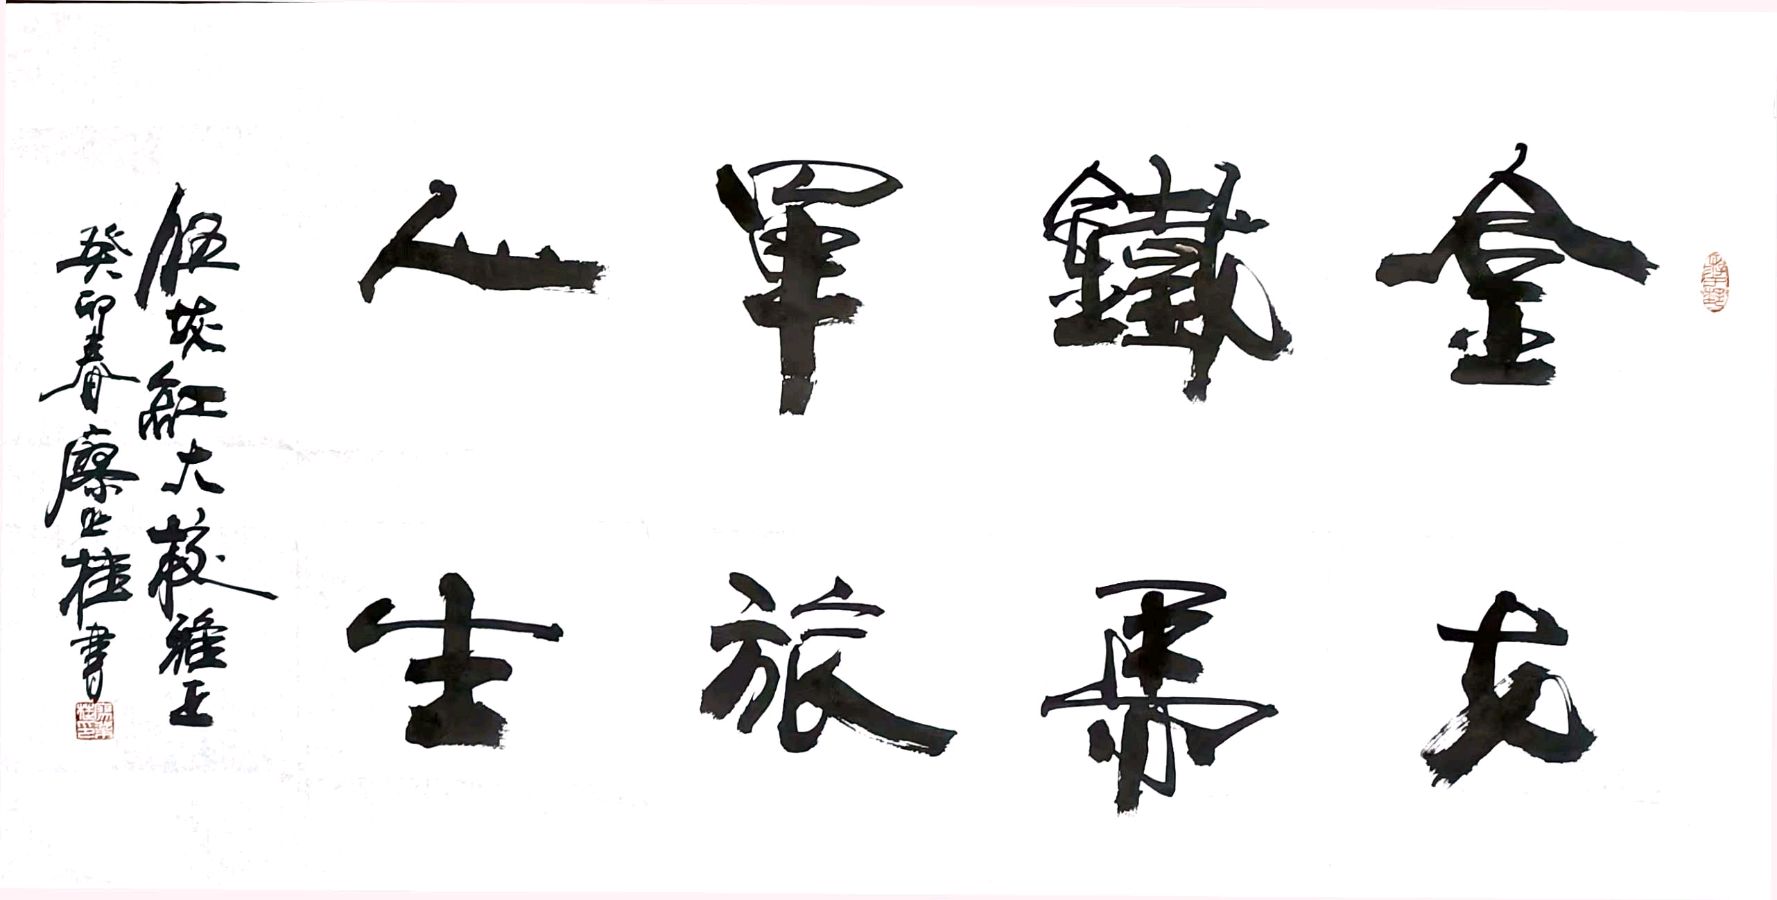 金戈
鐵馬
軍旅
人生
伍紅大校雅正
癸卯春廖桂書